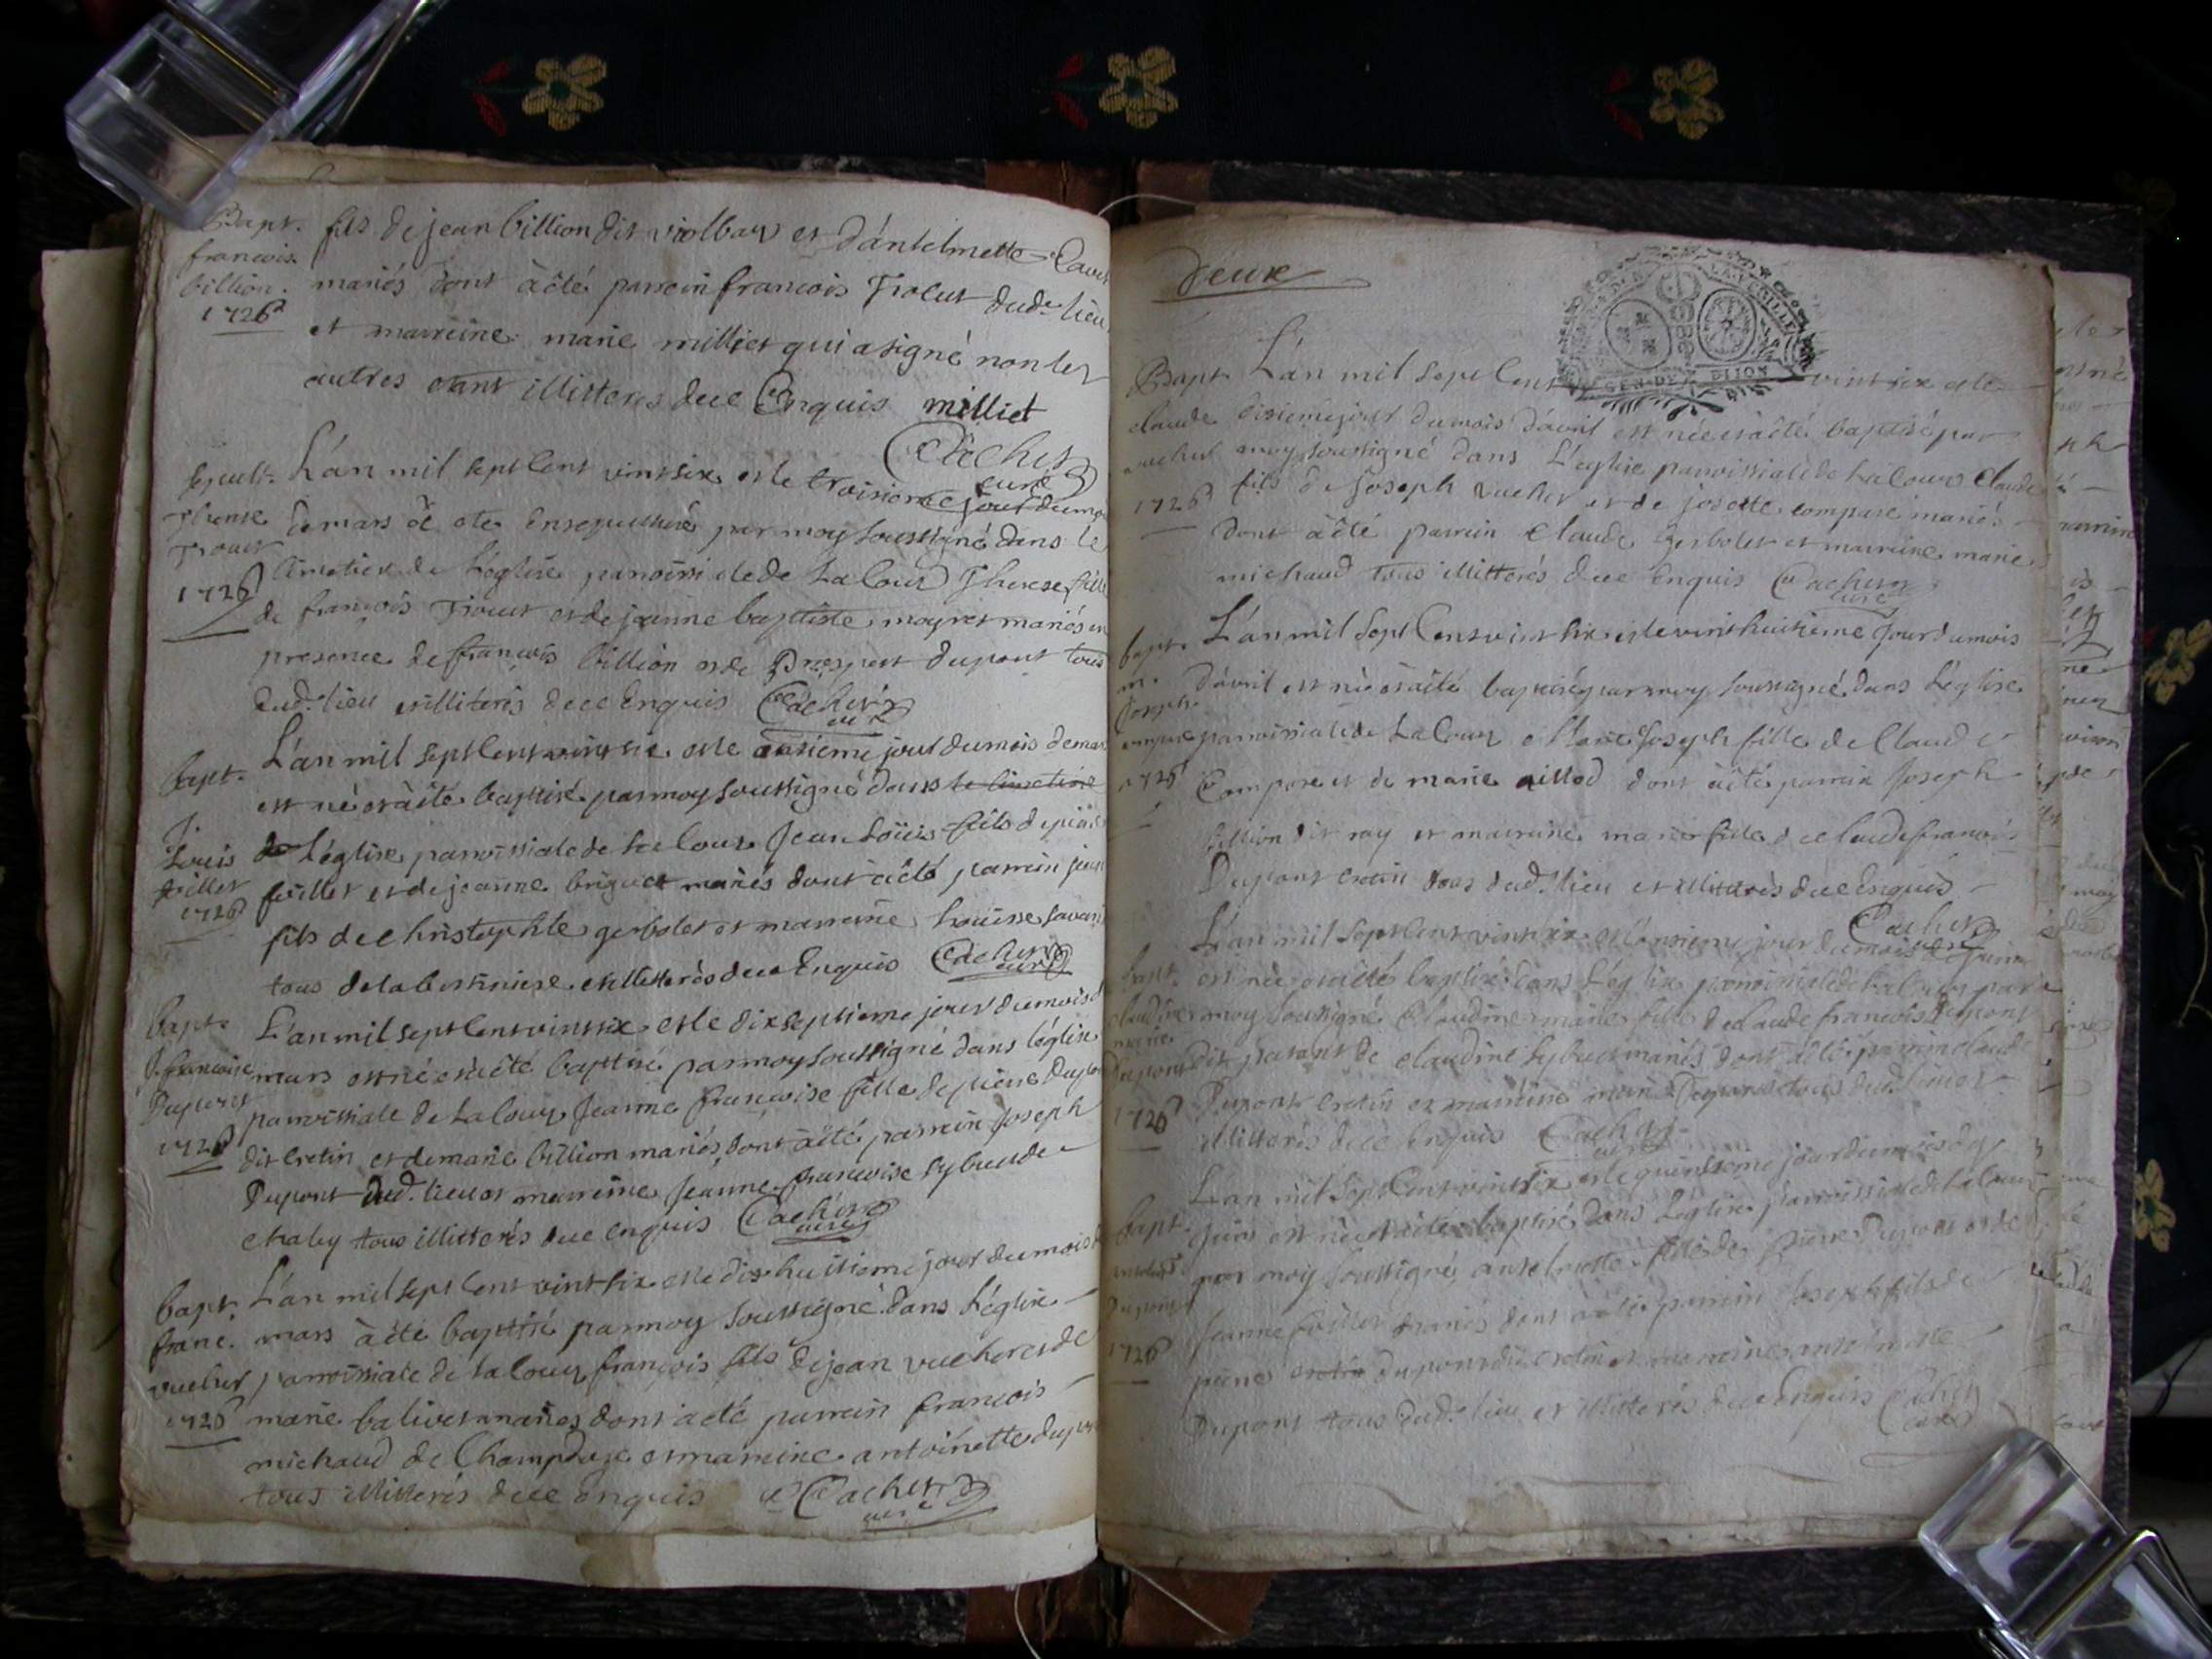 Bapt.
francois
billion.
1726
fils de jean billion dit violbau et dántelmette
mariés dont àèté parrein francois Trolut dud. lieu
et marreine marie milliet qui a signé non les
autres etant illitteres de ce Enquis milliet
Cacher
curé
sepult.
Therese
Trouet
1726
L'án mil sept Cent vint six et le troisieme jour du mois
demars à ete Ensepulturé par moy soussigné dans le
Cimetiere de L'église parroissiale de La Coux Therese fille
de francois Trouet et de jeanne baptiste moyret mariés en
presence de francois billion et de Prospert dupont tous
dud. lieu et illiterés de ce Enquis Cacher
curé
bapt.
J.
Louis
feillet
1726
L'án mil sept Cent vint six et le onsieme jour du mois demars
est né et àèté baptisé par moy soussigné dans le cimetiere
de L'églisse parroissiale de La Coux Jean Loüis fils de
feillet et de jeanne briguet mariés dont àèté parrein jean
fils de christophle gerbolet et marreine
tous de la et illitterés de ce Enquis Cacher
curé
bapt.
J. francoise
Dupont
1726
L'án mil sept Cent vint six et le dix septieme jour du mois d
mars est né et àèté baptisé par moy soussigné dans léglise
parroissiale de La Coux Jeanne francoise fille de pierre Dupont
dit Cretin et de marie billion mariés, dont àèté parrein Joseph
Dupont dud. lieu et marreine Jeanne francoise Sybuet de
chaley tous illitterés de ce enquis Cacher
curé
bapt.
franc.
vucher
1726
L'án mil sept Cent vint six et le dix huitieme jour du mois d
mars àèté baptisé par moy soussigné dans L'église
parroissiale de La Coux francois fils de jean vucher et de
marie balivet mariés dont àèté parrein francois
michaud de Champdor et marreine antoinette dupont
tous illitterés de ce Enquis Cacher
curé
Deux
GEN. DE DIJON
Bapt.
claude
vucher
1726
L'án mil sept Cent vint six et le
disieme jour du mois dávril est née et àèté baptisé par
moy soussigné dans L'église parroissiale de La Coux Claude
fils de Joseph vucher et de josette compare mariés
dont àèté parrein Claude Gerbolet et marreine marie
michaud tous illitterés de ce Enquis Cacher
curé
bapt.
m.
Joseph.
compare
1726
L'án mil sept Cent vint six et le vint huitieme Jour du mois
dávril est née et àèté baptisé par moy soussigné dans L'église
parroissiale de La Coux Marie Joseph fille de Claude
Compare et de marie aillod dont àèté parrein Joseph
billion dit ray et marreine marie fille de claude francois
Dupont cretin tous dud. lieu et illitterés de ce Enquis
Cacher
curé
bapt.
claudine
marie
Dupont
1726
L'án mil sept Cent vint six et l'onsieme jour du mois de Juin
est née et àèté baptisé dans L'église parroissiale de La Coux par
moy soussigné Claudine marie fille de claude francois Dupont
dit et de claudine Sybuet mariés dont àèté parrein claude
Dupont Cretin et marreine marie Dupont tous dud. lieu et
illitterés de ce Enquis Cacher
curé
bapt.
Dupont
1726
L'án mil sept Cent vint six et le quinsieme jour du mois de
Juin est née et àèté baptisé dans L'église parroissiale de La Coux
par moy soussigné antelmette fille de pierre Dupont et de
Jeanne feillet mariés dont àèté parrein Joseph fils de
pierre cretin dupont dit cretin et marreine antelmette
Dupont tous dud. lieu et illitterés de ce Enquis Cacher
curé